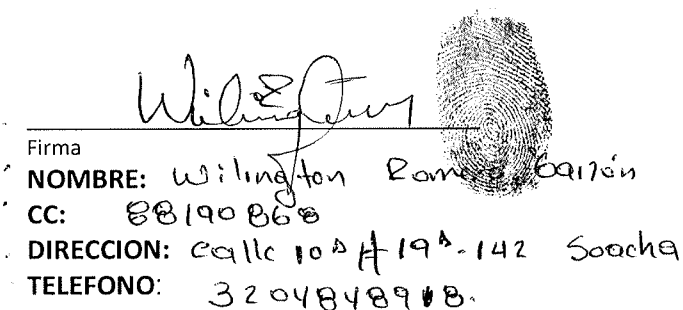 Wilington
Firma
NOMBRE: Wilington Romero Garzón
CC: 88190868
DIRECCION: Calle 10A # 19A-142 Soacha
TELEFONO: 3204848918.